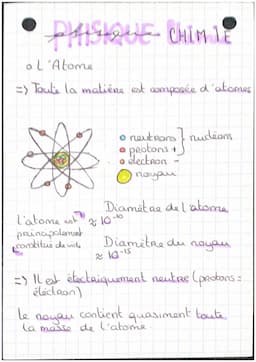 PHYSIQUE CHIMIE
o L'Atome
=> Toute la matière est composée d'atomes
o neutrons } nucléons
o protons +
o électron -
noyau
Diamètre de l'atome
≈ 10⁻¹⁰
L'atome est
principalement
constitué de vide
Diamètre du noyau
≈ 10⁻¹⁵
=> Il est électriquement neutre (protons =
électron)
Le noyau contient quasiment toute
la masse de l'atome.